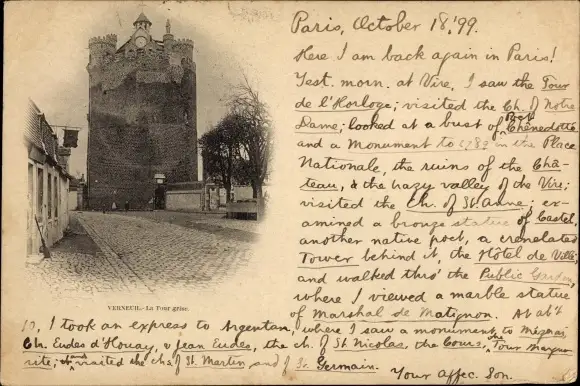 Paris, October 18, '99.
Here I am back again in Paris!
Yest. morn. at Vire, I saw the Tour
de l'Horloge; visited the Ch. of Notre
Dame; looked at a bust of Poet Chênedollé
and a Monument to 1789 in the Place
Nationale, the ruins of the Châ-
teau, & the hazy valley of the Vire;
visited the Ch. of St. Anne; ex-
amined a bronze statue of Castel,
another native poet, a crenelated
Tower behind it, the Hôtel de Ville;
and walked thro' the Public Garden,
where I viewed a marble statue
of Marshal de Matignon. At ab't
VERNEUIL. - La Tour grise.
10, I took an express to Argentan, where I saw a monument to Mézerai,
Ch. Eudes d'Houay, & Jean Eudes, the ch. of St Nicolas, the Cours, the Tour Margue-
rite; and visited the chs of St. Martin and of St. Germain.
Your Affec. Son.